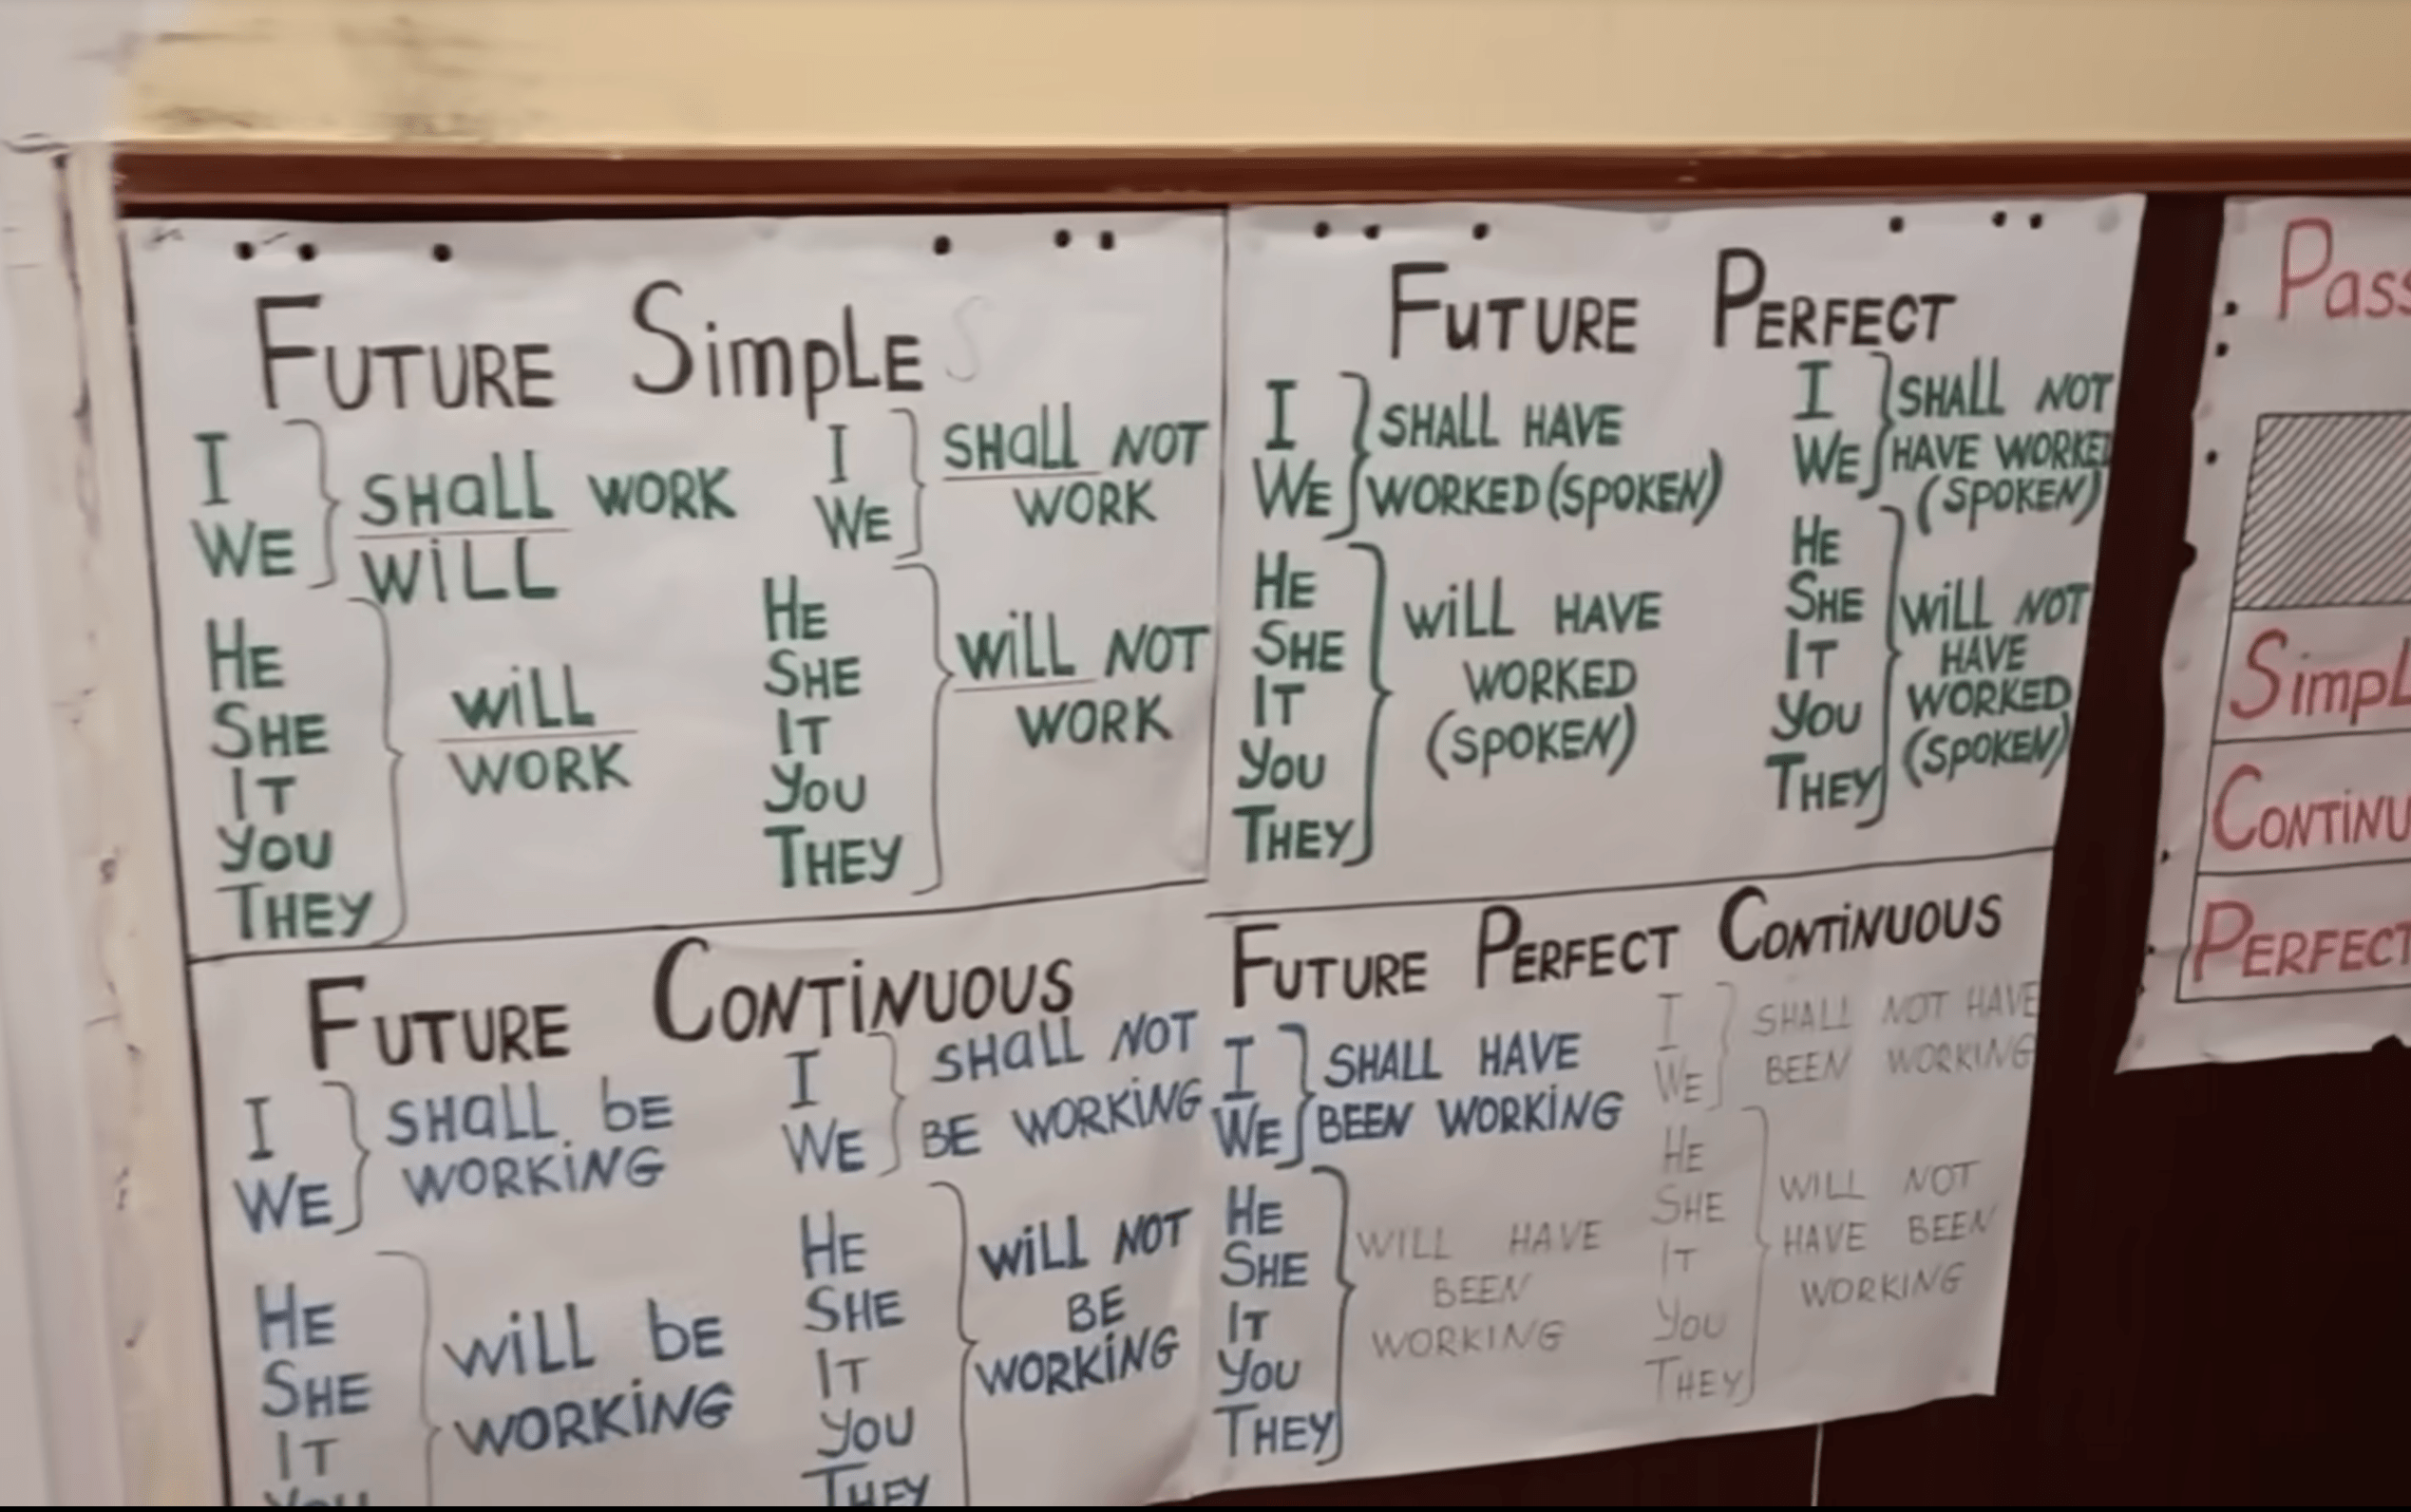 FUTURE SimpLE
I
WE
SHALL WORK
WILL
HE
SHE
IT
YOU
THEY
WILL
WORK
I
WE
SHALL NOT
WORK
HE
SHE
IT
YOU
THEY
WILL NOT
WORK
FUTURE PERFECT
I
WE
SHALL HAVE
WORKED (SPOKEN)
HE
SHE
IT
YOU
THEY
WILL HAVE
WORKED
(SPOKEN)
I
WE
SHALL NOT
HAVE WORKED
(SPOKEN)
HE
SHE
IT
YOU
THEY
WILL NOT
HAVE
WORKED
(SPOKEN)
FUTURE CONTINUOUS
I
WE
SHALL bE
WORKING
HE
SHE
IT
YOU
WILL bE
WORKING
I
WE
SHALL NOT
BE WORKING
HE
SHE
IT
YOU
THEY
WILL NOT
BE
WORKING
FUTURE PERFECT CONTINUOUS
I
WE
SHALL HAVE
BEEN WORKING
HE
SHE
IT
YOU
THEY
WILL HAVE
BEEN
WORKING
I
WE
SHALL NOT HAVE
BEEN WORKING
HE
SHE
IT
YOU
THEY
WILL NOT
HAVE BEEN
WORKING
PASS
SimpL
CONTINU
PERFECT